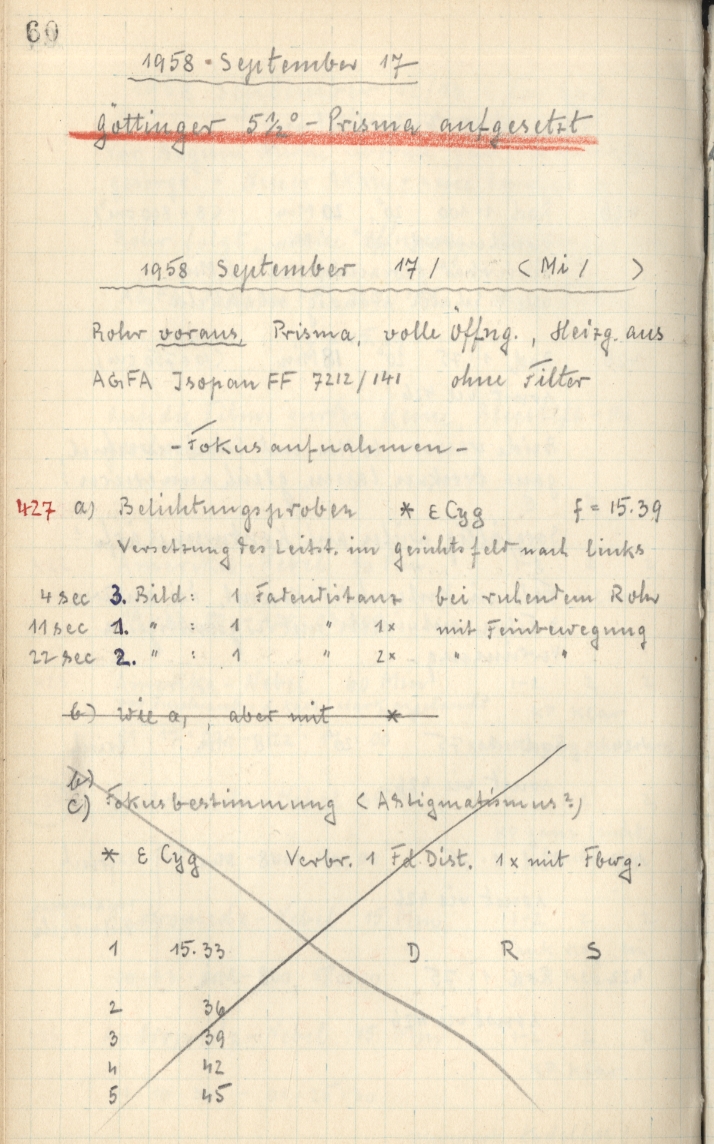 60
1958 September 17
Göttinger 5½° - Prisma aufgesetzt
1958 September 17/ (Mi/ )
Rohr voraus, Prisma, volle Öffng., Heizg. aus
AGFA Isopan FF 7212/141 ohne Filter
- Fokusaufnahmen -
427 a) Belichtungsproben * ε Cyg f = 15.39
Versetzung des Leitst. im Gesichtsfeld nach links
4 sec 3. Bild: 1 Fadendistanz bei ruhendem Rohr
11 sec 1. " : 1 " 1x mit Feinbewegung
22 sec 2. " : 1 " 2x " "
b) wie a, , aber mit *
b)
c) Fokusbestimmung (Astigmatismus?)
* ε Cyg Verbr. 1 Fd Dist. 1x mit Fbwg.
1 15.33 D R S
2 36
3 39
4 42
5 45